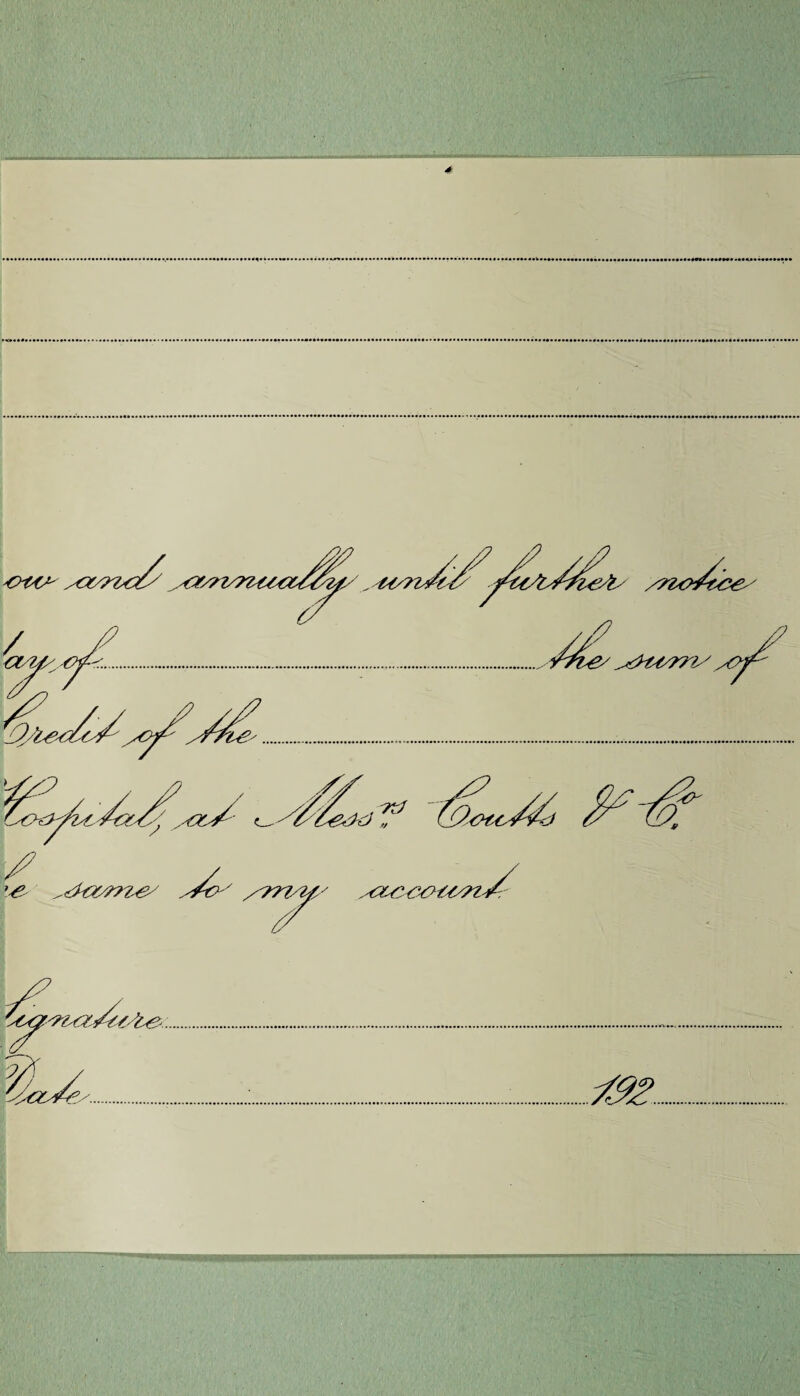 now and annually until further notice
day of the sum of
Credit of the
Hospital, at Mess.rs Coutts & Co.
e same to my account
Signature
Date 192